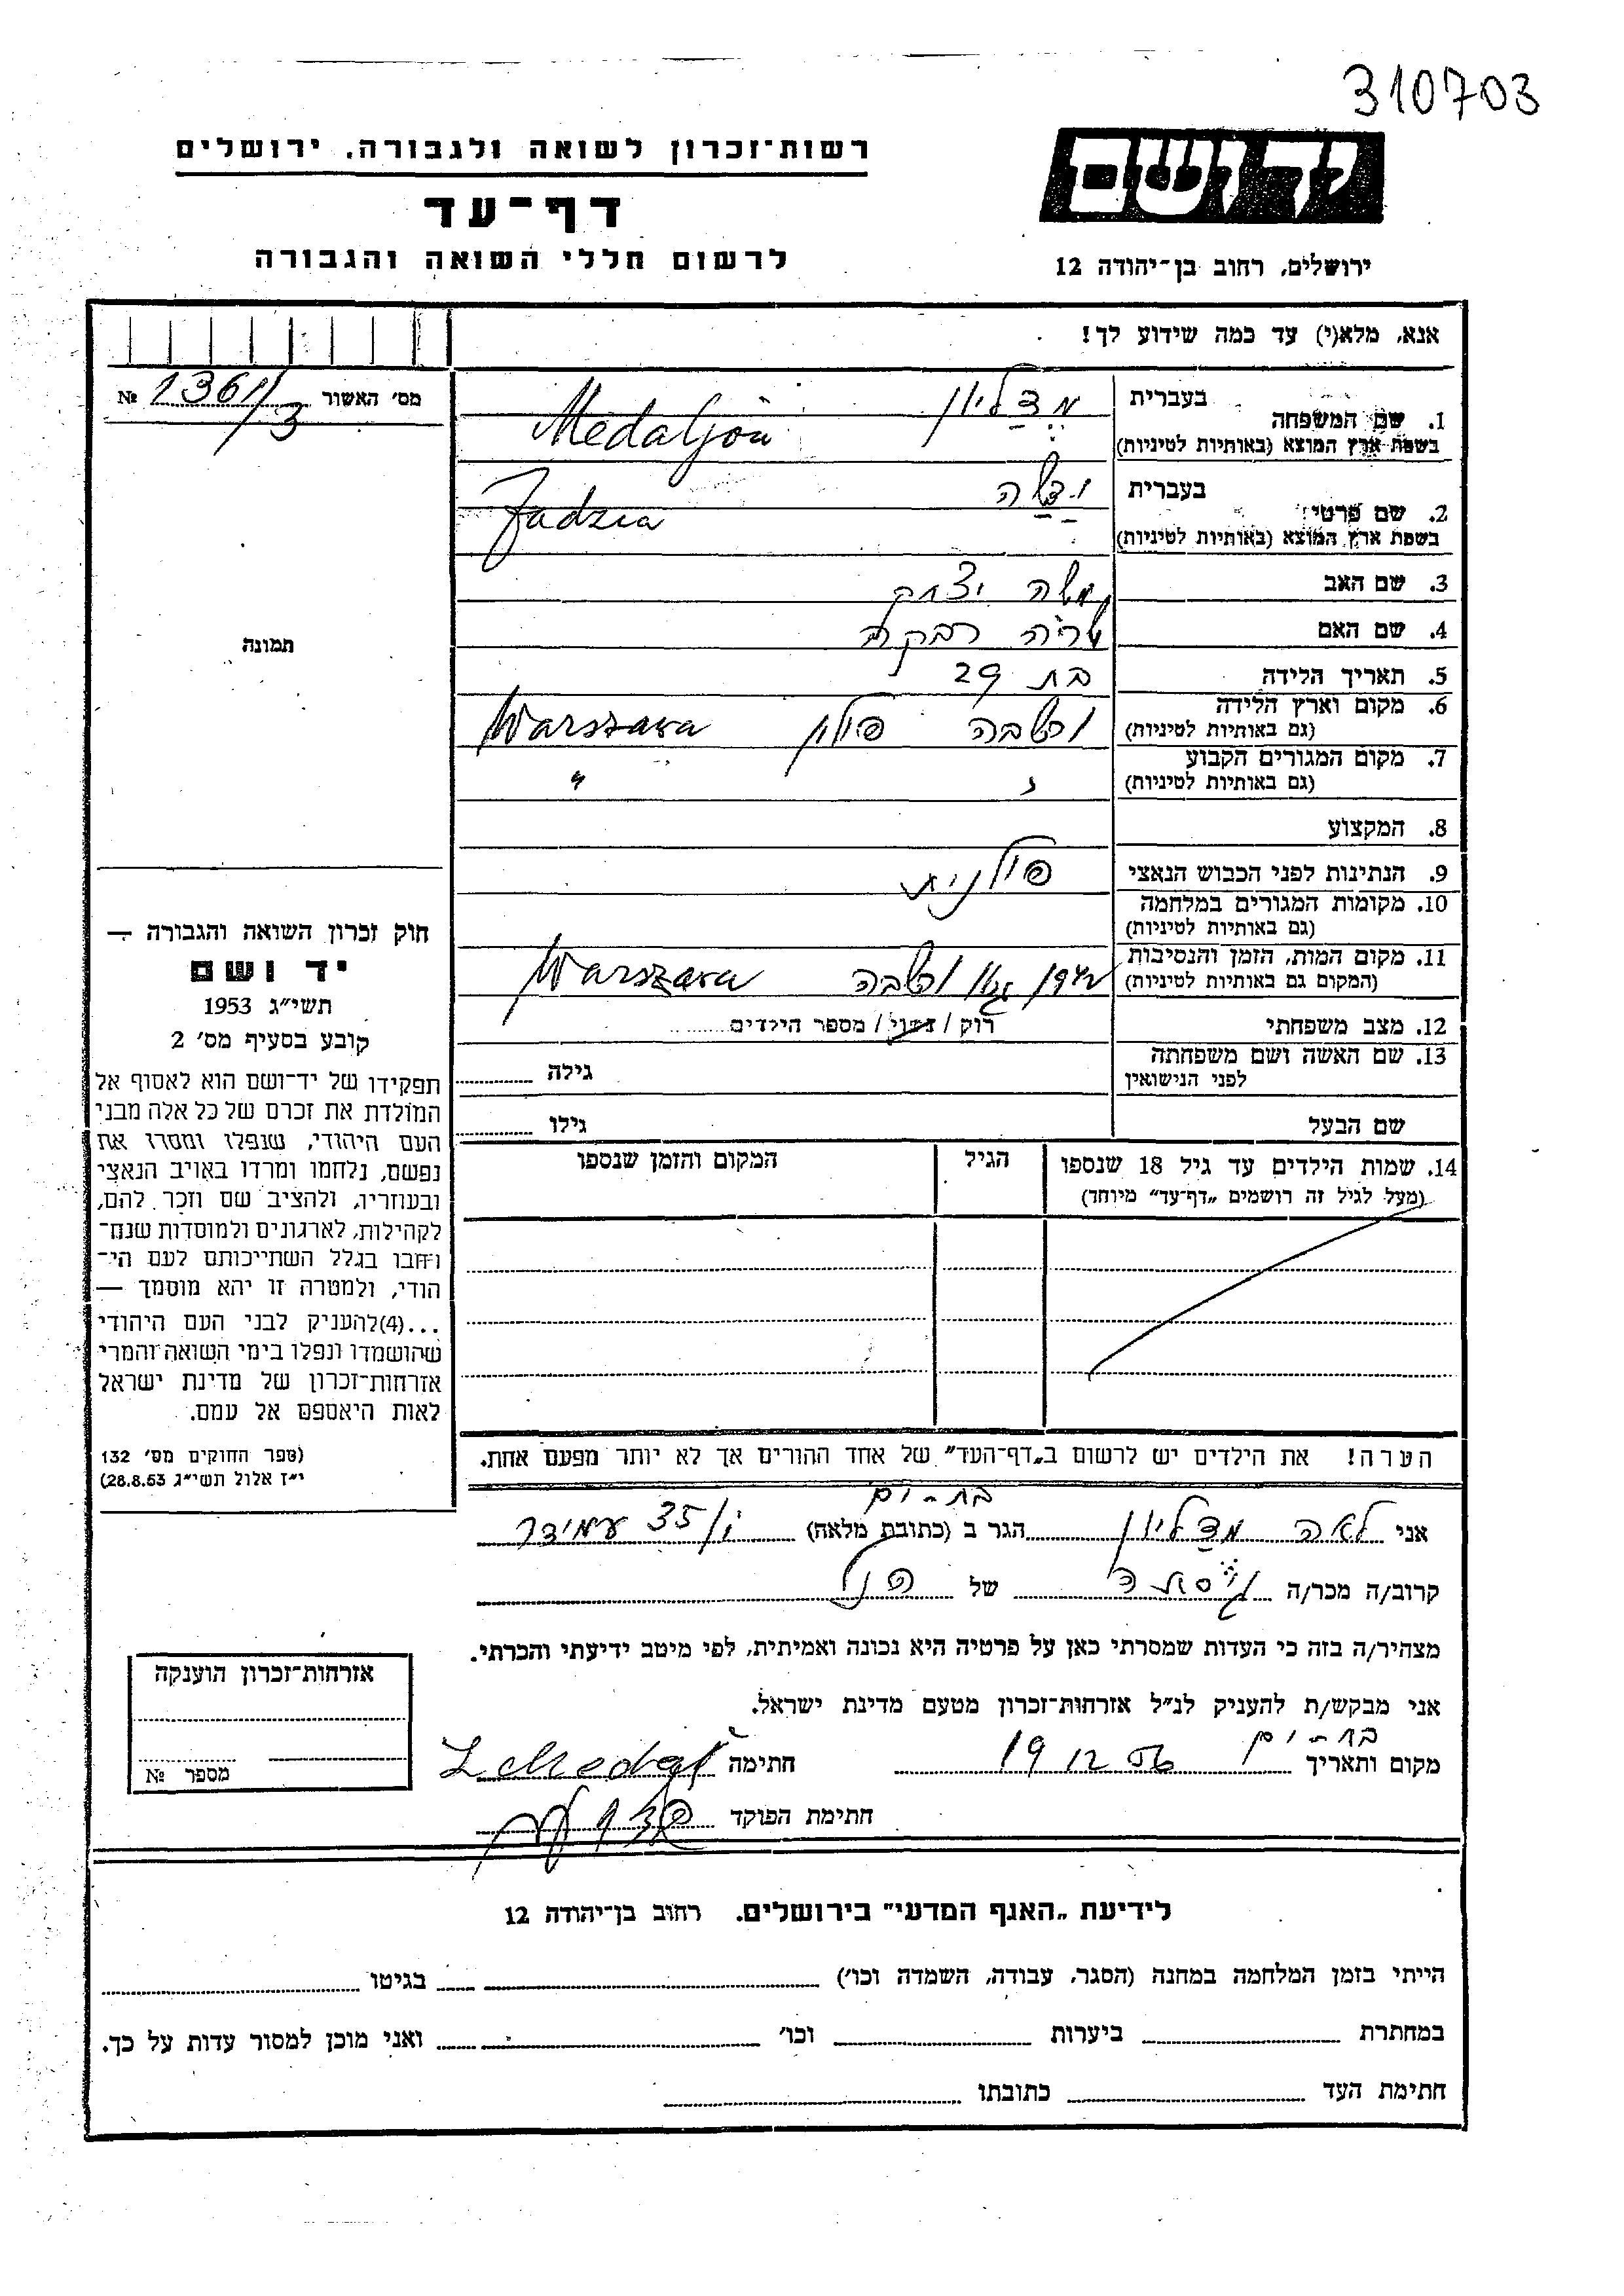 310703
רשות־זכרון לשואה ולגבורה, ירושלים
יד ושם
דף־עד
לרשום חללי השואה והגבורה
ירושלים, רחוב בן־יהודה 12
אנא, מלא(י) עד כמה שידוע לך!
מס׳ האשור 1361/3 №
תמונה
בעברית מדליון
1. שם המשפחה
בשפת ארץ המוצא (באותיות לטיניות) Medaljon
בעברית
2. שם פרטי
בשפת ארץ המוצא (באותיות לטיניות) Jadzia
3. שם האב משה יצחק
4. שם האם שרה רבקה
5. תאריך הלידה בת 29
6. מקום וארץ הלידה ורשבה פולין Warszawa
(גם באותיות לטיניות)
7. מקום המגורים הקבוע " "
(גם באותיות לטיניות)
8. המקצוע
9. הנתינות לפני הכבוש הנאצי פולנית
10. מקומות המגורים במלחמה
(גם באותיות לטיניות)
11. מקום המות, הזמן והנסיבות ורשבה Warszawa
(המקום גם באותיות לטיניות)
12. מצב משפחתי רוק / נשוי / מספר הילדים
13. שם האשה ושם משפחתה
לפני הנישואין
גילה
שם הבעל גילו
14. שמות הילדים עד גיל 18 שנספו הגיל המקום והזמן שנספו
(מעל לגיל זה רושמים „דף־עד” מיוחד)
הערה! את הילדים יש לרשום ב„דף־העד” של אחד ההורים אך לא יותר מפעם אחת.
חוק זכרון השואה והגבורה —
יד ושם
תשי״ג 1953
קובע בסעיף מס׳ 2
תפקידו של יד־ושם הוא לאסוף אל
המולדת את זכרם של כל אלה מבני
העם היהודי, שנפלו ומסרו את
נפשם, נלחמו ומרדו באויב הנאצי
ובעוזריו, ולהציב שם וזכר להם,
לקהילות, לארגונים ולמוסדות שנח־
רבו בגלל השתייכותם לעם הי־
הודי, ולמטרה זו יהא מוסמך —
...(4)להעניק לבני העם היהודי
שהושמדו ונפלו בימי השואה והמרי
אזרחות־זכרון של מדינת ישראל
לאות היאספם אל עמם.
(ספר החוקים מס׳ 132
י״ז אלול תשי״ג 28.8.53)
בת-ים
אני לאה מדליון הגר ב (כתובת מלאה) 35 עמידר
קרוב/ה מכר/ה גיסתה של הנ"ל
מצהיר/ה בזה כי העדות שמסרתי כאן על פרטיה היא נכונה ואמיתית, לפי מיטב ידיעתי והכרתי.
אני מבקש/ת להעניק לנ״ל אזרחות־זכרון מטעם מדינת ישראל.
בת-ים
מקום ותאריך 19 12 56 חתימה
חתימת הפוקד
אזרחות־זכרון הוענקה
מספר №
לידיעת „האגף המדעי” בירושלים. רחוב בן־יהודה 12
הייתי בזמן המלחמה במחנה (הסגר, עבודה, השמדה וכו׳) בגיטו
במחתרת ביערות וכו׳ ואני מוכן למסור עדות על כך.
חתימת העד כתובתו